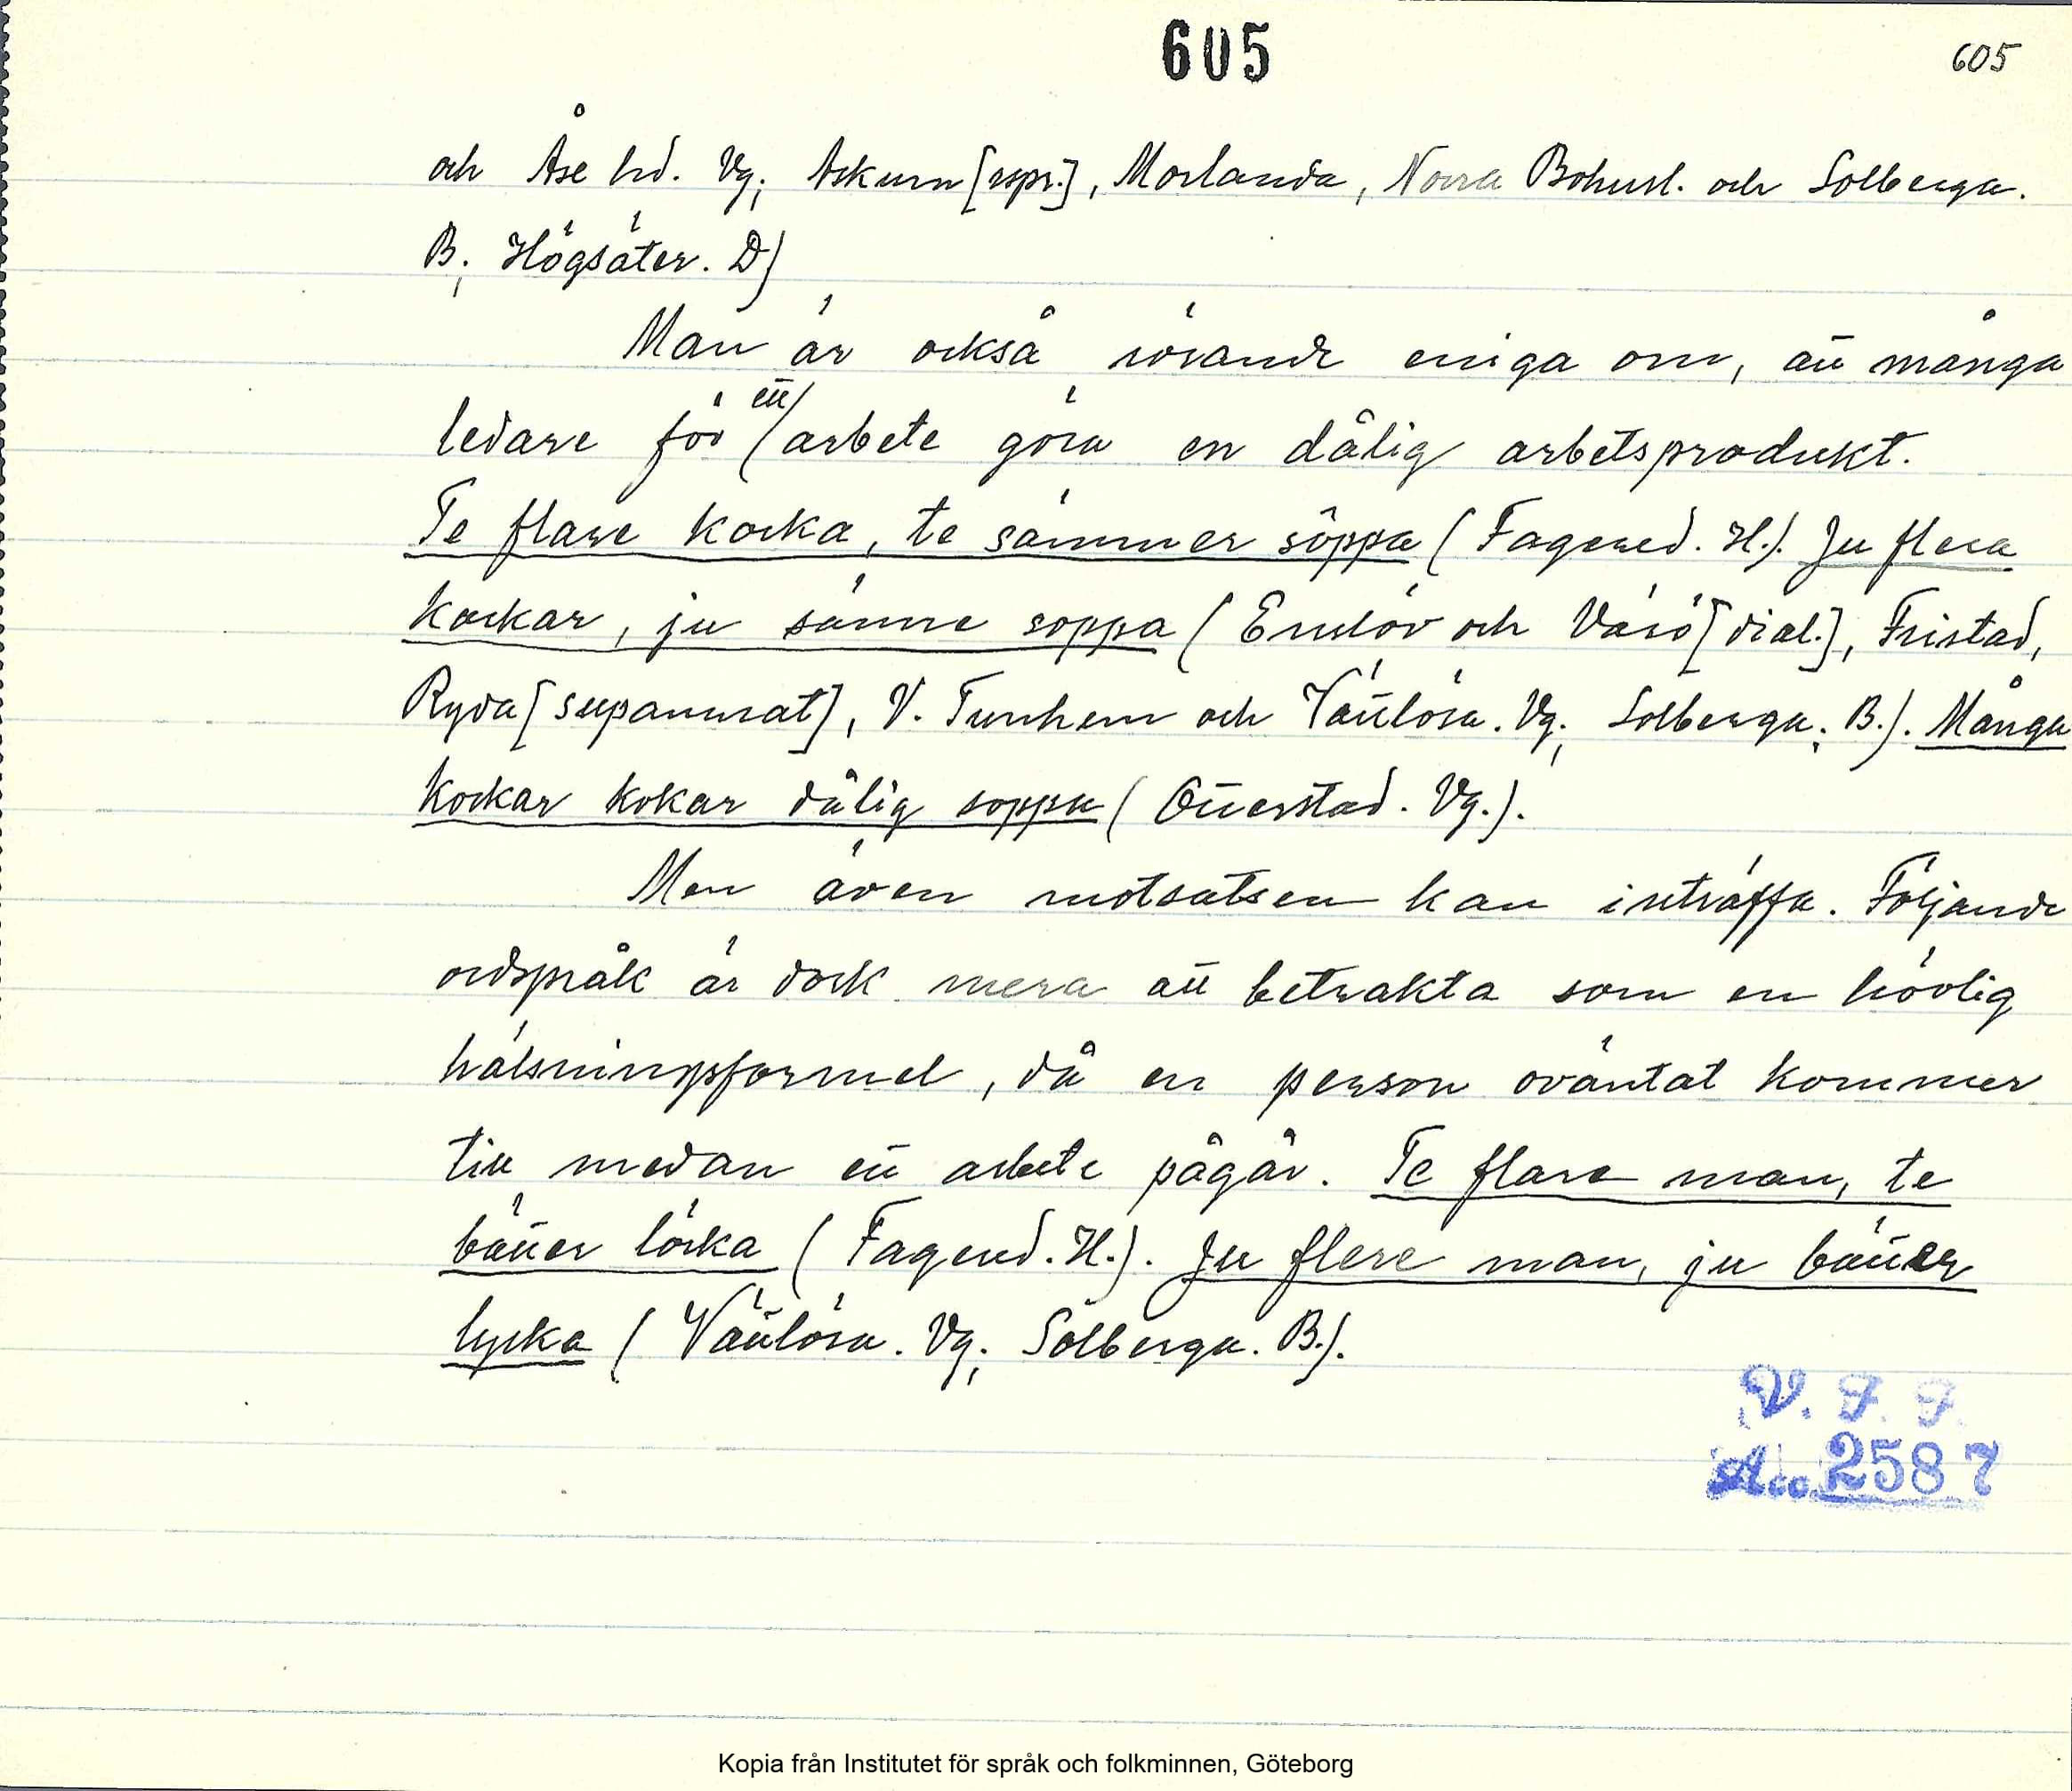 605
605
och Åse hd. Vg; Askum [rspr.], Morlanda, Norra Bohusl. och Solberga.
B; Högsäter. D)
Man är också rörande eniga om, att många
ledare för ett arbete göra en dålig arbetsprodukt.
Te flare kocka, te sämmer söppa (Fagered. H.). Ju flera
kockar, ju sämre soppa (Enslöv och Värö [dial.], Fristad,
Ryda [supannat], V. Tunhem och Vättlösa. Vg; Solberga; B.). Många
kockar kokar dålig soppa (Otterstad. Vg.).
Men även motsatsen kan inträffa. Följande
ordspråk är dock mera att betrakta som en hövlig
hälsningsformel, då en person oväntat kommer
till medan ett arbete pågår. Te flare man, te
bätter löcka (Fagered. H.). Ju flere man, ju bätter
lycka (Vättlösa. Vg; Solberga. B.).
V. F. F.
Acc. 2587
Kopia från Institutet för språk och folkminnen, Göteborg